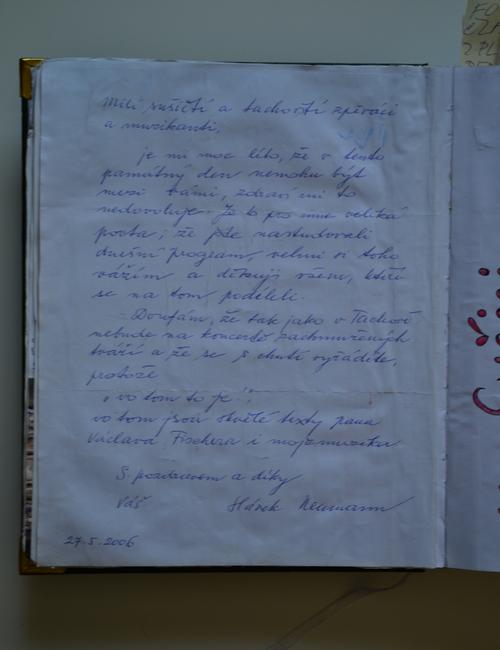 Milí sušičtí a tachovští zpěváci
a muzikanti,
je mi moc líto, že v tento
památný den nemohu být
mezi vámi, zdraví mi to
nedovoluje. Je to pro mne veliká
pocta, že jste nastudovali
dnešní program, velmi si toho
vážím a děkuji všem, kteří
se na tom podíleli.
Doufám, že tak jako v Tachově
nebude na koncertě zachmuřených
tváří a že se s chutí vyřádíte,
protože
"vo tom to je!",
vo tom jsou skvělé texty pana
Václava Fischera i moje muzika
S pozdravem a díky
Váš Hánek Neumann
27.5.2006